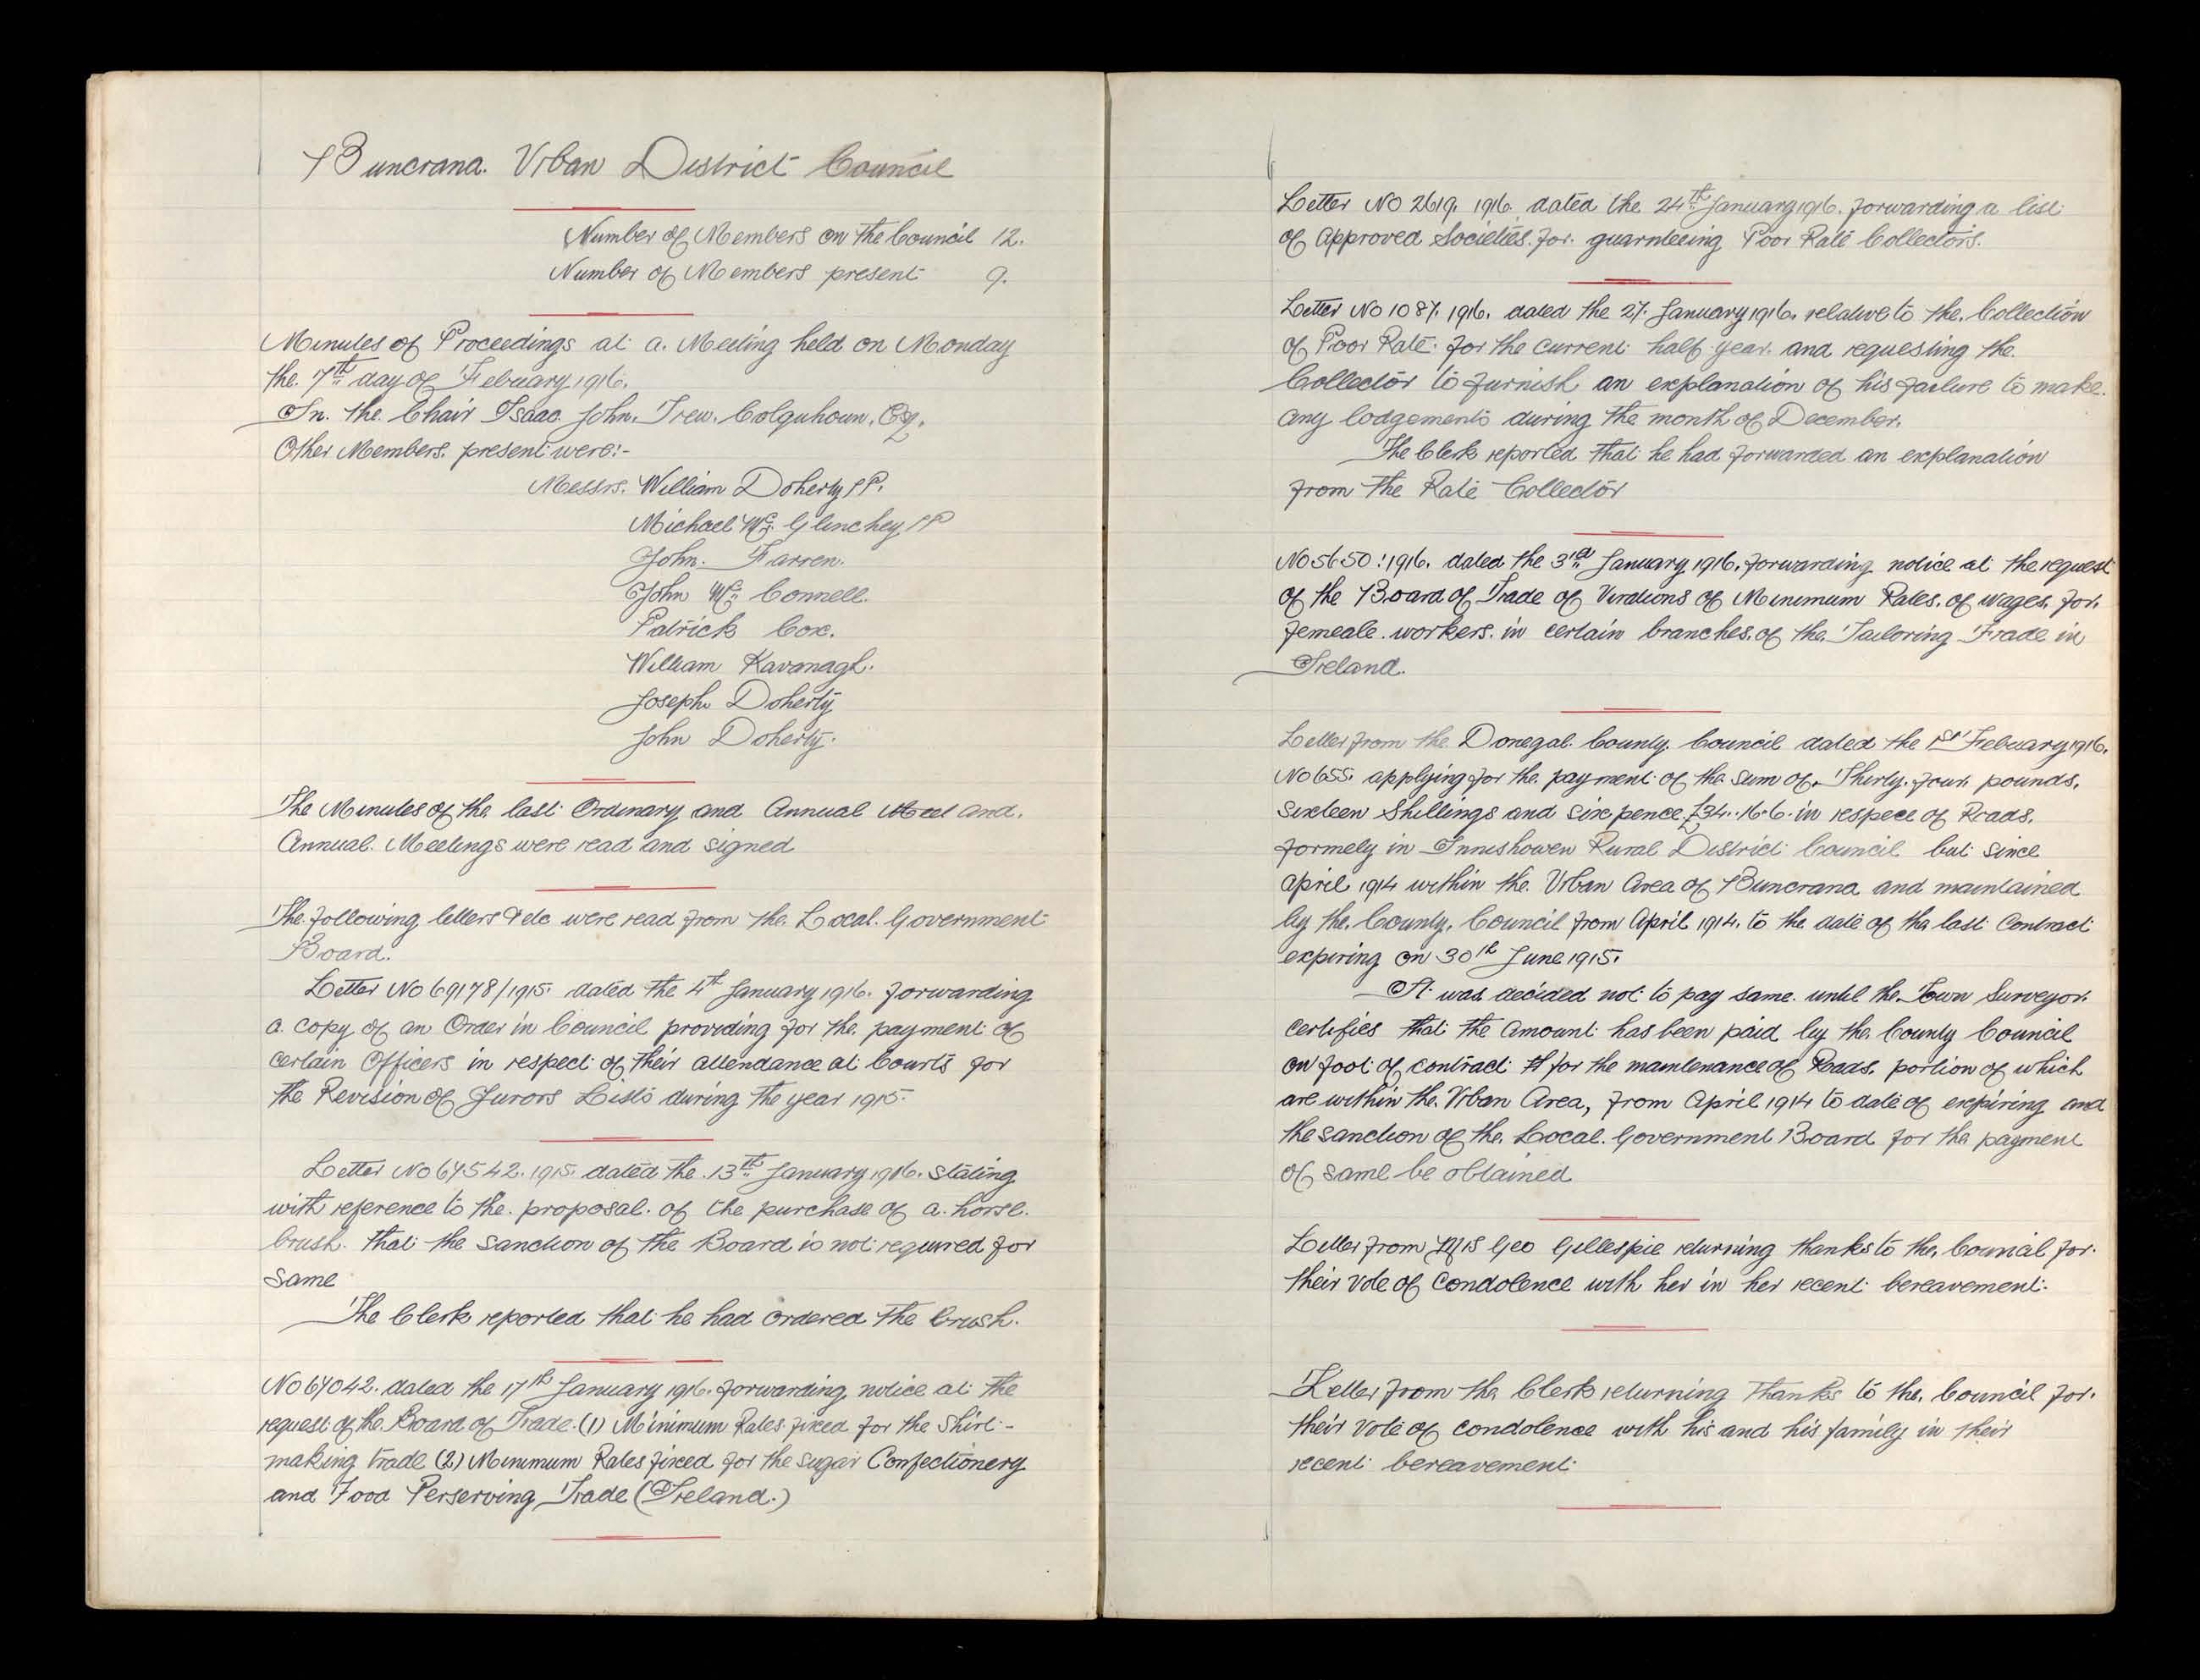 Buncrana. Urban District Council
Number of Members on the Council 12.
Number of Members present 9.
Minutes of Proceedings at a. Meeting held on Monday
the. 7th day of February, 1916.
In. the. Chair Isaac. John. Trew. Colquhoun. Esq.
Other Members. present were:-
Messrs. William Doherty J.P.
Michael McGlinchey J P
John. Farren.
John Mc Connell.
Patrick Cox.
William Kavanagh.
Joseph Doherty
John Doherty.
The Minutes of the last Ordinary and Annual Meet and.
Annual. Meetings were read and signed
The following letters & etc were read from the. Local. Government
Board.
Letter No 69178/1915. dated the 4th January 1916. forwarding
a copy of an Order in Council providing for the. payment of
certain Officers in respect of their attendance at Courts for
the Revision of Jurors Lists during the year 1915.
Letter No 67542. 1915. dated the. 13th January 1916. stating
with reference to the. proposal. of the purchase of a. horse.
brush. that the sanction of the Board is not required for
same
The Clerk reported that he had ordered the brush.
No 67042. dated the 17th January 1916. forwarding notice at the
request of the. Board of Trade. (1) Minimum Rates fixed for the Shirt-
making trade (2) Minimum Rates fixed for the sugar Confectionery
and Food Perserving Trade (Ireland.)
Letter No 2619. 1916. dated the 24th January 1916. forwarding a list
of approved Societies. for. guarnteeing Poor Rate Collectors.
Letter No 1087. 1916. dated the 27. January 1916. relative to the. Collection
of Poor Rate. for the current half year. and requesting the.
Collector to furnish an explanation of his failure to make.
any lodgements during the month of December.
The Clerk reported that he had forwarded an explanation
from the Rate Collector
No 5650. 1916. dated the 3rd January 1916. forwarding notice at the request
of the Board of Trade of Virations of Minimum Rates. of wages. for.
femeale. workers. in certain branches. of the. Tailoring Trade in
Ireland.
Letter from the Donegal. County. Council dated the 1st February 1916.
No 655. applying for the payment of the sum of. Thirty. four. pounds.
sixteen Shillings and six pence £34..16.6. in respect of Roads.
formely in Innishowen Rural District Council but since
april 1914 within the. Urban Area of Buncrana and maintained
by the. County. Council from April 1914. to the date of the last Contract
expiring on 30th June 1915.
It was decided not to pay same until the. Town Surveyor.
certifies that the amount has been paid by the. County Council
on foot of contract for the maintenance of Roads. portion of which
are within the. Urban Area, from April 1914 to date of expiring and
the sanction of the. Local. Government Board for the payment
of same be obtained
Letter from Mrs Geo Gillespie returning thanks to the. Council for.
their vote of condolence with her in her recent bereavement.
Letter from the Clerk returning thanks to the. Council for.
their vote of condolence with his and his family in their
recent bereavement